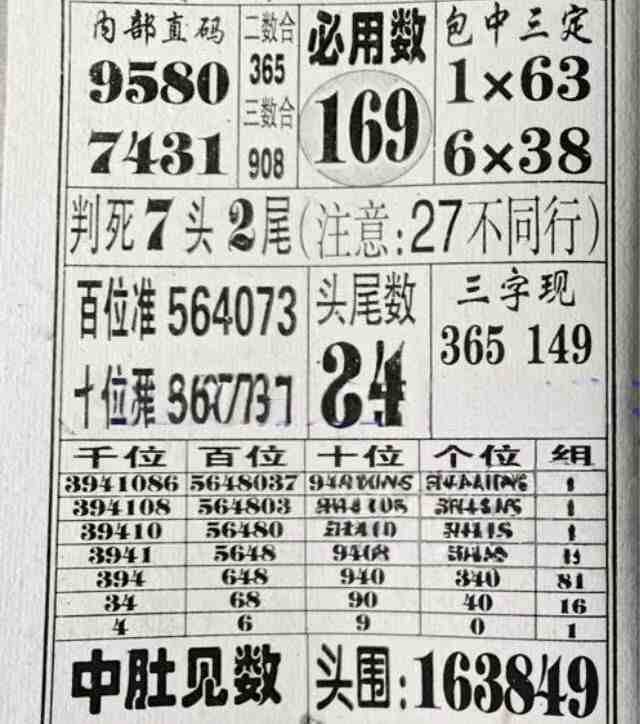 内部直码
9580
7431
二数合
365
三数合
908
必用数
169
包中三定
1×63
6×38
判死7头2尾(注意:27不同行)
百位准 564073
十位
头尾数
24
三字现
365 149
千位 百位 十位 个位 组
3941086 5648037
394108 564803
39410 56480
3941 5648
394 648 940 340 81
34 68 90 40 16
4 6 9 0 1
中肚见数 头围:163849